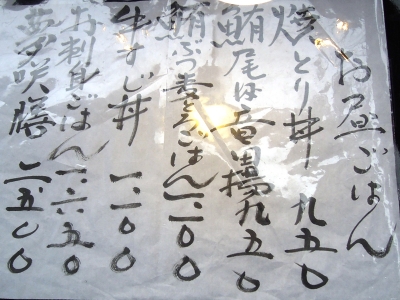 お昼ごはん
焼とり丼 九五〇
鮪尾の竜田揚 九五〇
鮪ぶつ麦とろごはん 一、一〇〇
牛すじ丼 一、一〇〇
お刺身ごはん 一、六五〇
夢咲膳 二、五〇〇